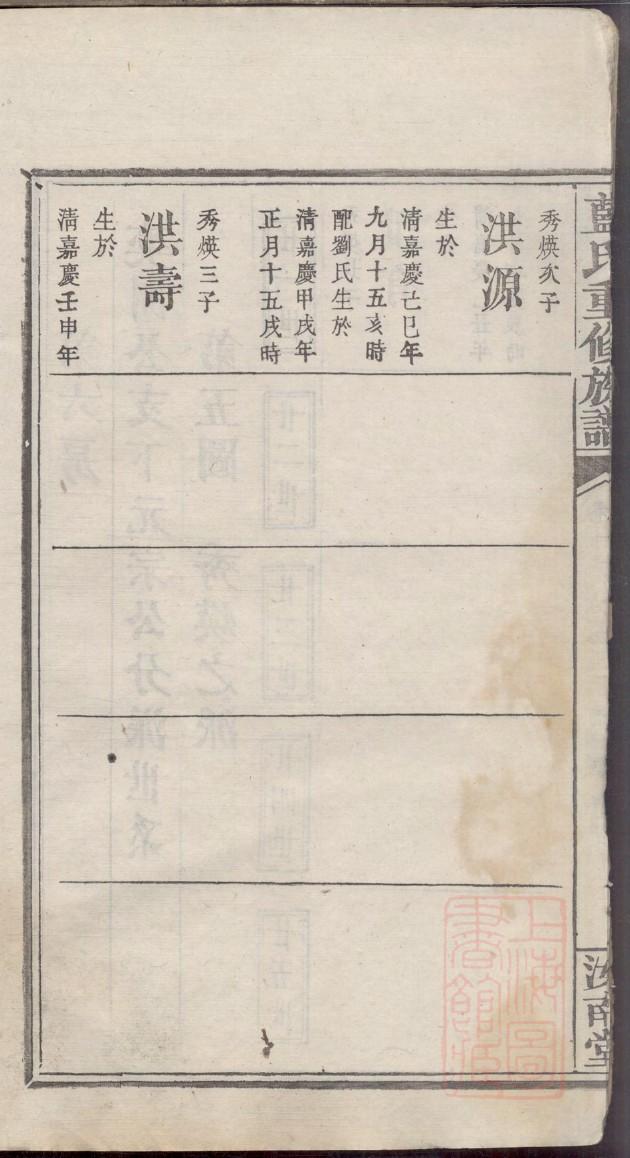 藍氏重修族譜
汝南堂
秀煐次子
洪源
生於
清嘉慶己巳年
九月十五亥時
配劉氏生於
清嘉慶甲戌年
正月十五戌時
秀煐三子
洪壽
生於
清嘉慶壬申年
上海圖
書館藏